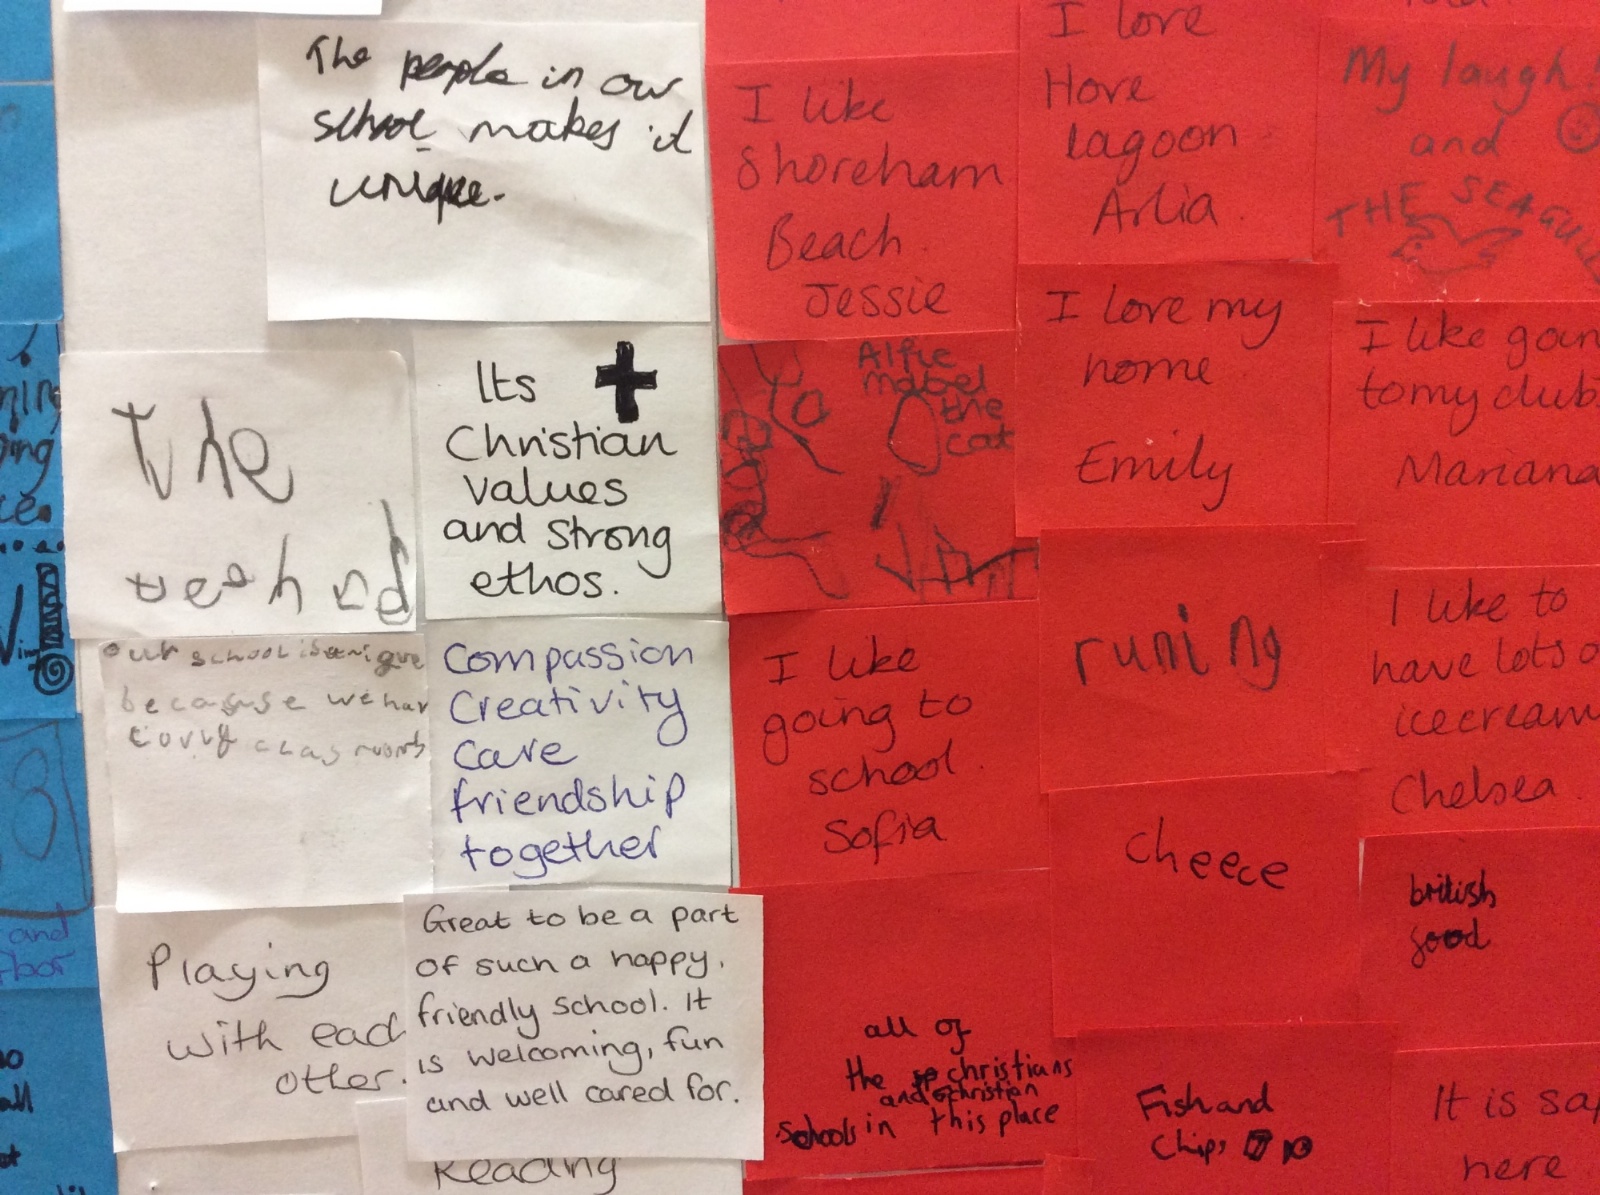 The people in our
school makes it
unique.
I like
Shoreham
Beach.
Jessie
I love
Hove
lagoon
Arlia.
My laugh!
and
THE SEAGULL
The
Its
Christian
values
and strong
ethos.
Alfie
mabel
the
cat
I love my
home
Emily
I like goin
to my club
Mariana
our school is
because we hav
compassion
Creativity
Care
friendship
together
I like
going to
school.
Sofia
runing
I like to
have lots o
icecream
Chelsea.
cheece
british
food
Playing
with each
other.
Great to be a part
of such a happy,
friendly school. It
is welcoming, fun
and well cared for.
Reading
all of
the christians
and christian
schools in this place
Fish and
Chips
It is sa
here
and